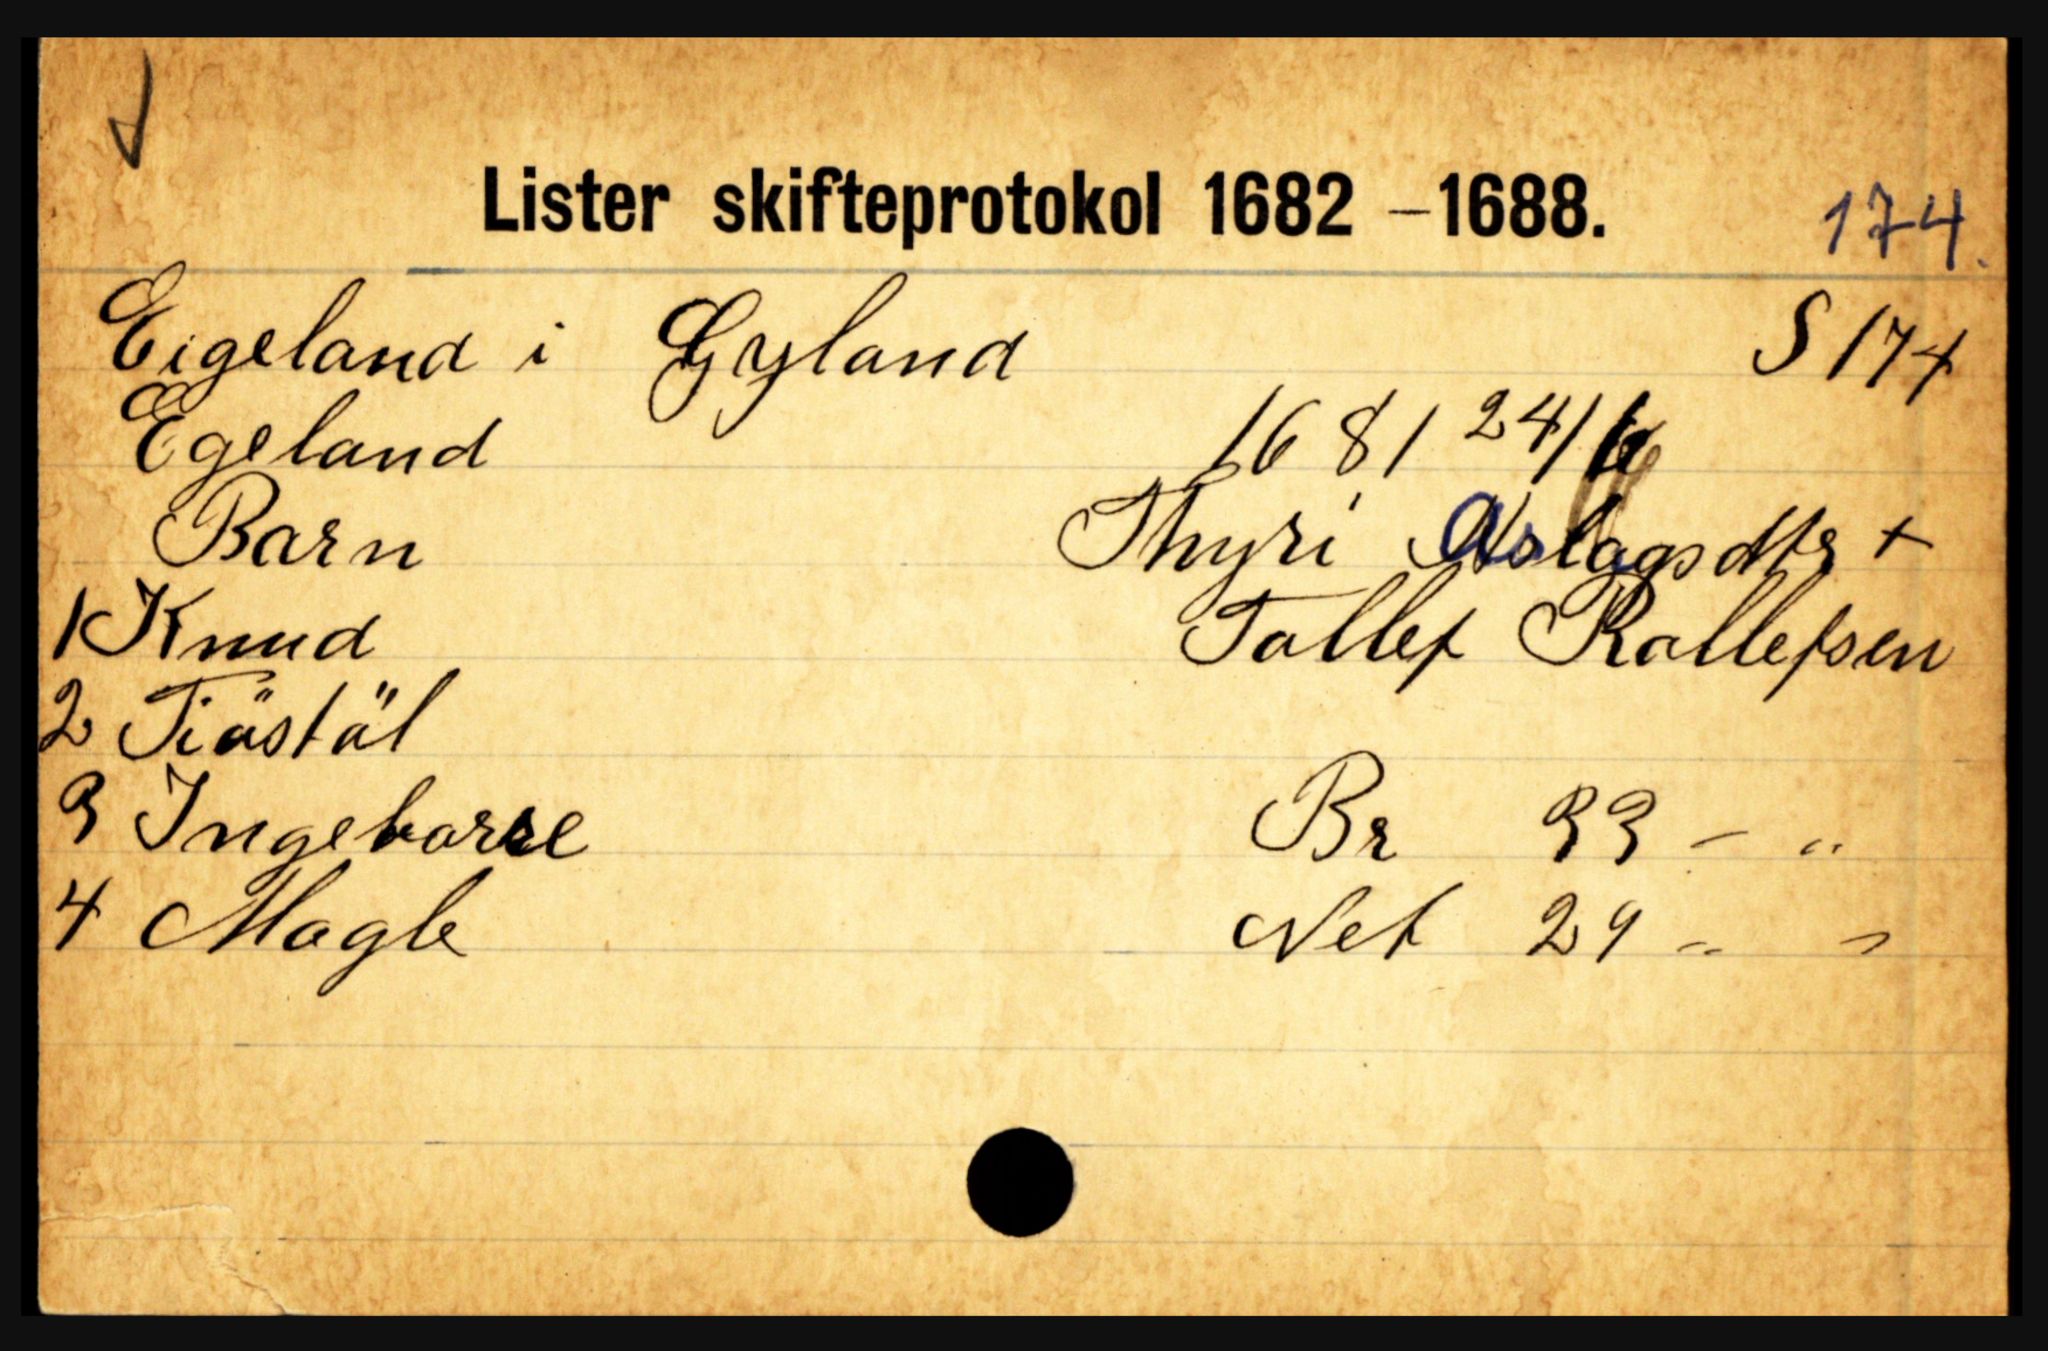 Lister skifteprotokol 1682 – 1688.
174.
Eigeland i Gyland S 174
Egeland 1681 24/
Barn Thyri Aslagsdtr +
1 Knud Tollef Rollefsen
2 Tiöstäl
3 Ingeborre Br 33 – "
4 Magle Net 29 " "